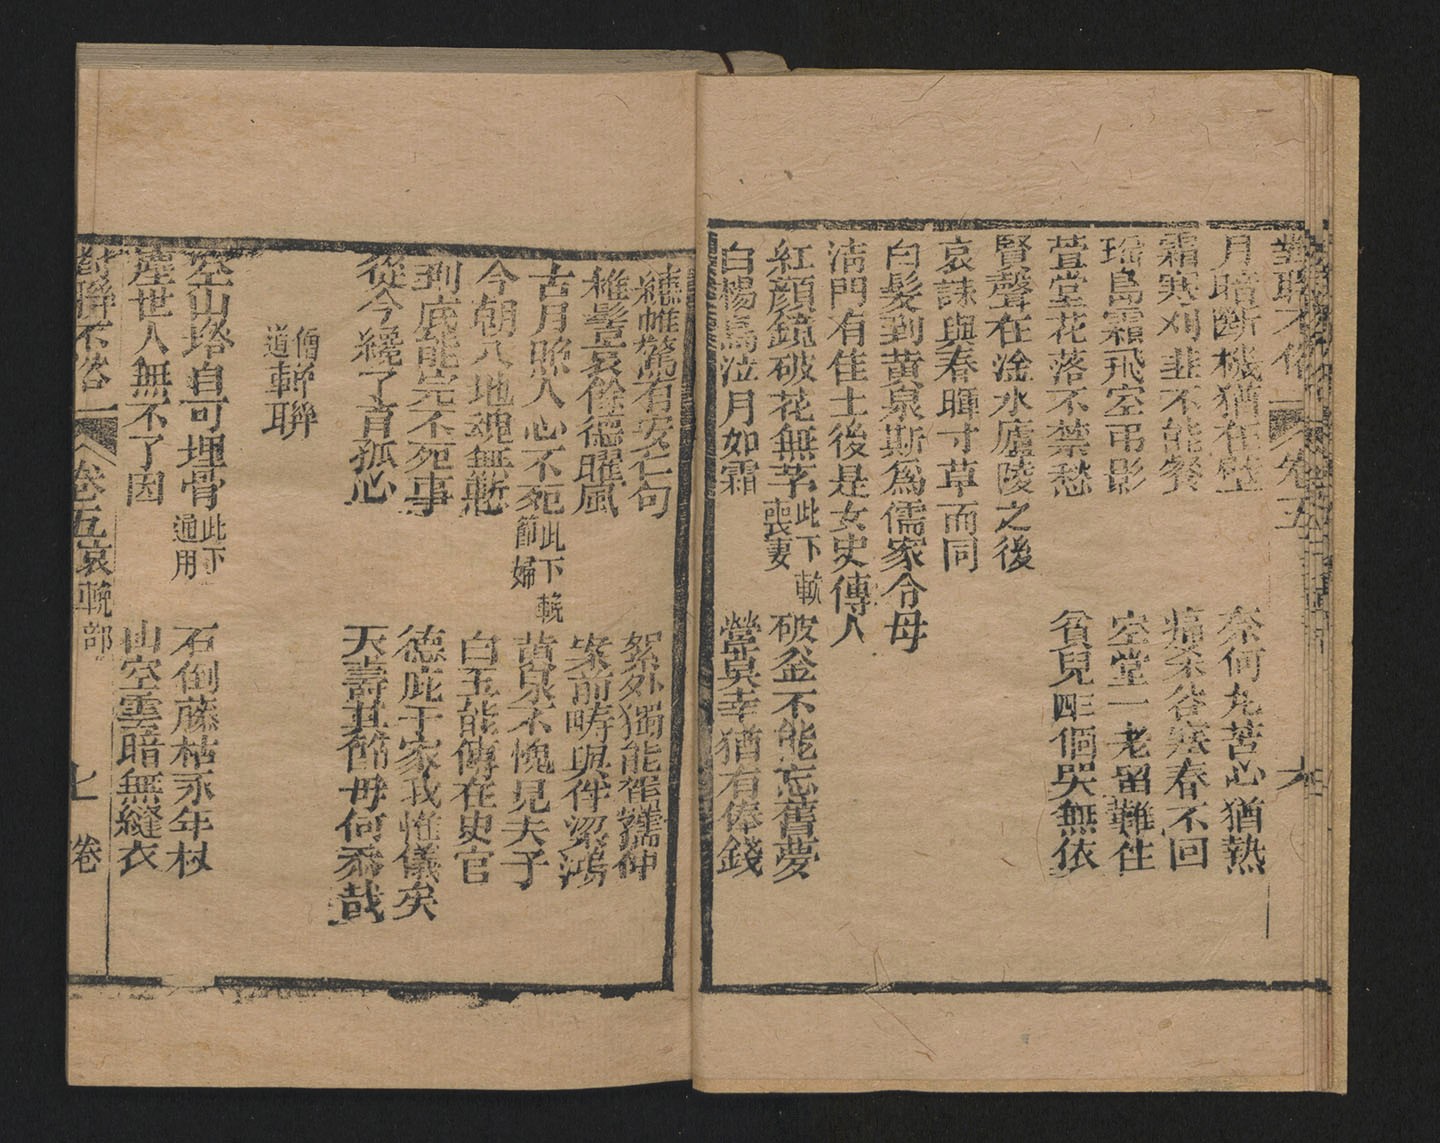 對聯不俗 卷五 六
月暗斷機猶在壁 奈何丸苦心猶熱
霜寒刈韭不能餐 痛栗谷寒春不回
瑤島霜飛空弔影 空堂一老留難住
萱堂花落不禁愁 貧兒四個哭無依
賢聲在淦水廬陵之後
哀誄與春暉寸草而同
白髮到黃泉斯爲儒家令母
清門有佳士後是女史傳人
紅顏鏡破花無孚 此下輓喪妻 破釜不能忘舊夢
白楊烏泣月如霜 營奠幸猶有俸錢
繐帷驚有安仁句 絮外獨能褌犢仲
椎髻哀餘德曜風 案前疇與伴梁鴻
古月照人心不死 此下輓節婦 黃泉不愧見夫子
今朝入地魂無慙 白玉能傳在史官
到底能完不死事 德庇于家我惟儀矣
從今纔了育孤心 天壽其節母何忝哉
僧道輓聯
空山塔自可埋骨 此下通用 石倒藤枯永年杖
塵世人無不了因 山空雲暗無縫衣
對聯不俗 卷五哀輓部 七 卷